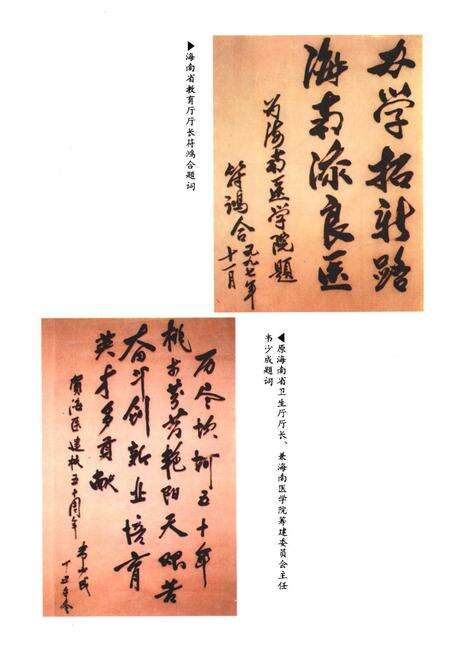 办学拓新路
海南添良医
为海南医学院题
符鸿合一九九七年
十一月
▶海南省教育厅厅长符鸿合题词
历尽坎坷五十年
桃李芬芳艳阳天艰苦
奋斗创新业培育
英才多贡献
贺海医建校五十周年
韦少成
丁丑年冬
◀原海南省卫生厅厅长、兼海南医学院筹建委员会主任
韦少成题词